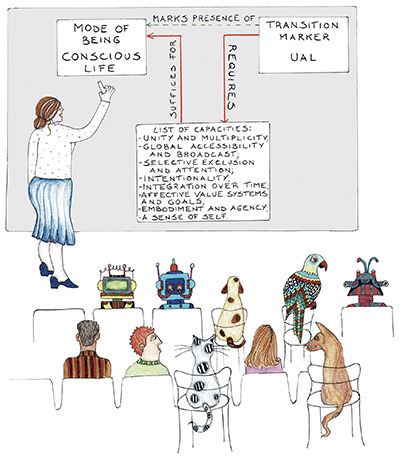 MODE OF
BEING
CONSCIOUS
LIFE
MARKS PRESENCE OF
TRANSITION
MARKER
UAL
SUFFICES FOR
REQUIRES
LIST OF CAPACITIES:
-UNITY AND MULTIPLICITY,
-GLOBAL ACCESSIBILITY
AND BROADCAST,
-SELECTIVE EXCLUSION
AND ATTENTION;
-INTENTIONALITY,
-INTEGRATION OVER TIME,
-AFFECTIVE VALUE SYSTEMS
AND GOALS,
-EMBODIMENT AND AGENCY,
-A SENSE OF SELF.